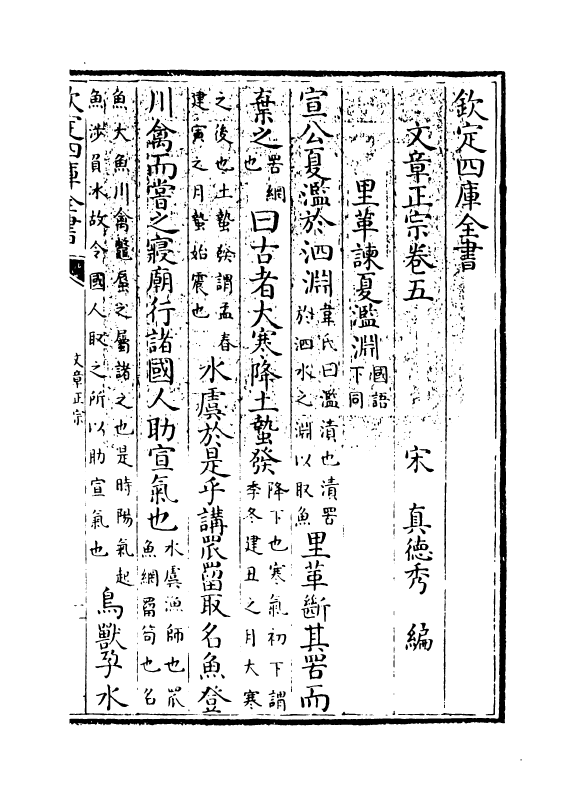 欽定四庫全書
文章正宗卷五 宋 真徳秀 編
里革諫夏濫淵 國語下同
宣公夏濫於泗淵 韋氏曰濫漬也漬罟於泗水之淵以取魚 里革斷其罟而
棄之 罟網也 曰古者大寒降土蟄發 降下也寒氣初下謂季冬建丑之月大寒
之後也土蟄發謂孟春建寅之月蟄始震也 水虞於是乎講罛罶取名魚登
川禽而嘗之寢廟行諸國人助宣氣也 水虞漁師也罛魚網罶笱也名
魚大魚川禽鼈蜃之屬諸之也是時陽氣起魚涉負氷故令國人取之所以助宣氣也 鳥獸孕水
欽定四庫全書 文章正宗